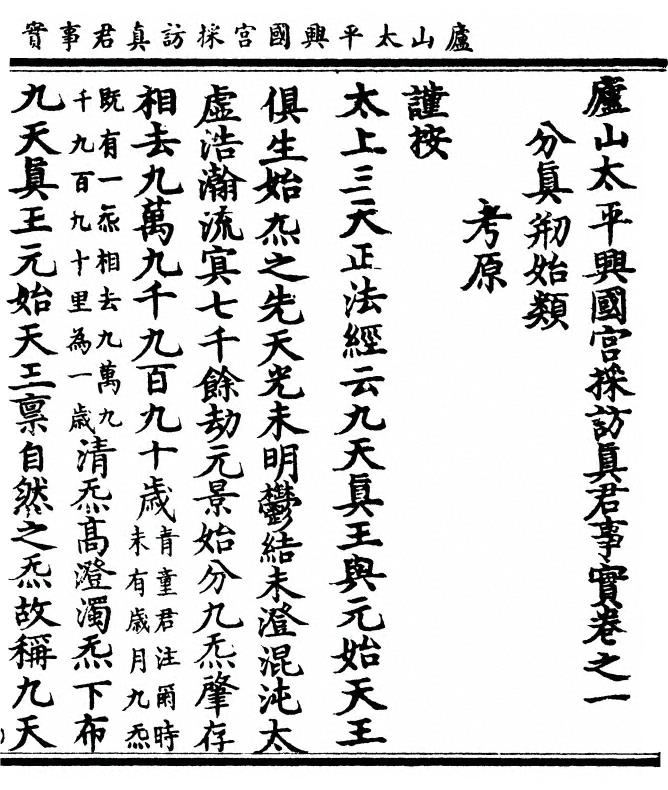 廬山太平興國宮採訪真君事實
廬山太平興國宮採訪眞君事實卷之一
分眞剏始類
考原
謹按
太上三天正法經云九天眞王與元始天王
俱生始炁之先天光未明鬱結未澄混沌太
虛浩瀚流㝠七千餘劫元景始分九炁肇存
相去九萬九千九百九十歲青童君注爾時未有歲月九炁
既有一炁相去九萬九千九百九十里為一歲清炁高澄濁炁下布
九天眞王元始天王禀自然之炁故稱九天